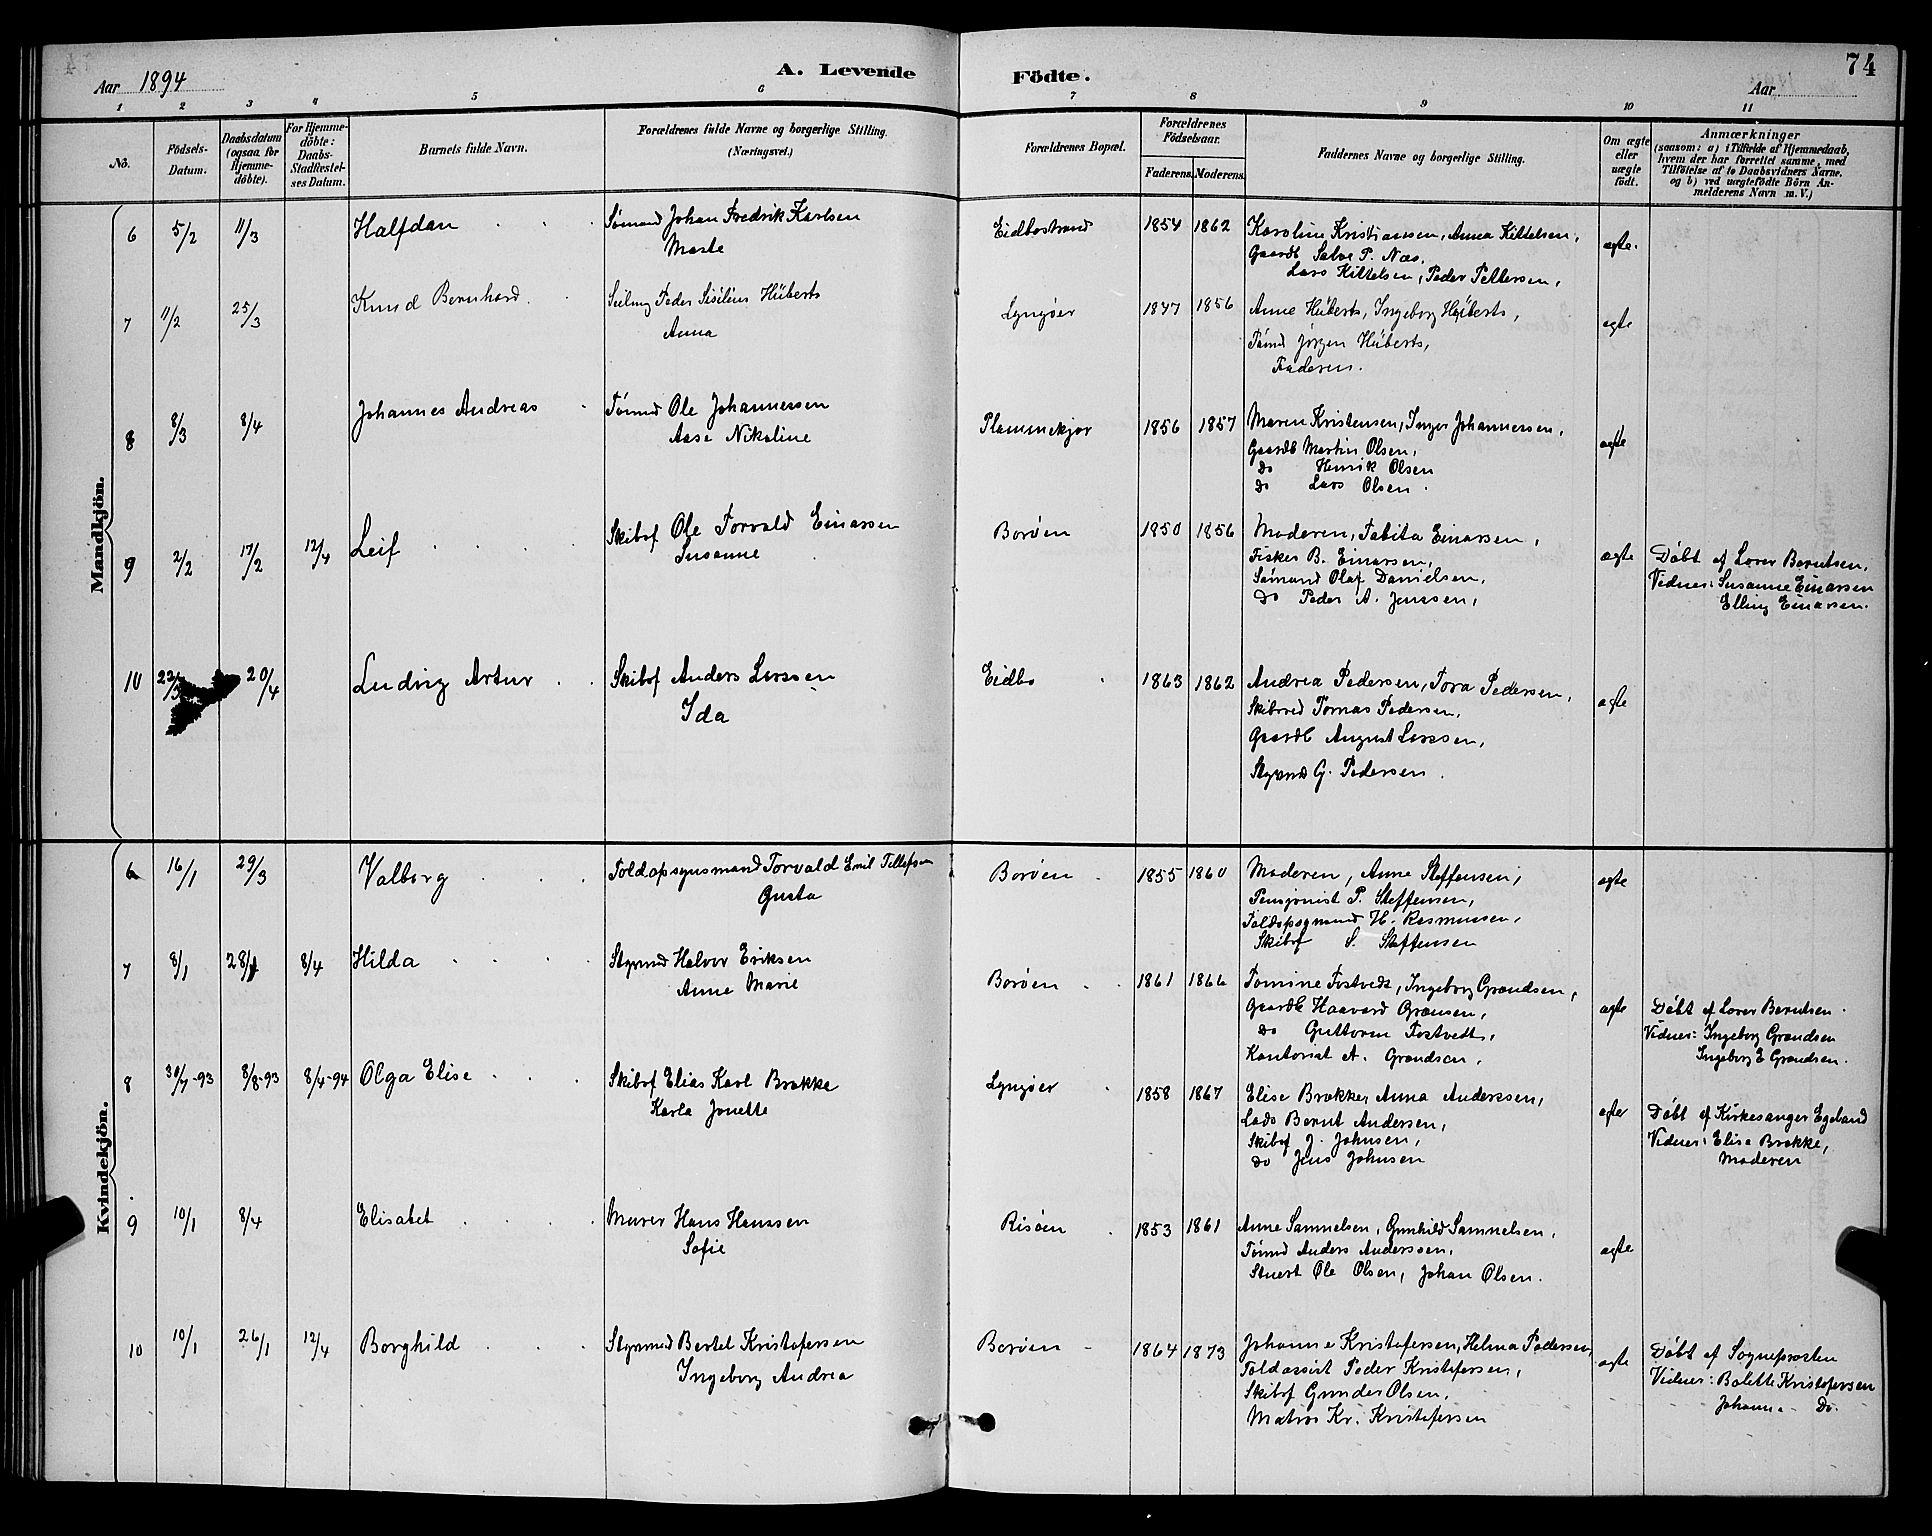 74
Aar 1894
A. Levende Födte.
Aar
1 2 3 4 5 6 7 8 9 10 11
No.
Födsels-Datum.
Daabsdatum (ogsaa for Hjemme-döbte).
For Hjemme-döbte: Daabs-Stadfæstel-ses Datum.
Barnets fulde Navn.
Forældrenes fulde Navne og borgerlige Stilling. (Næringsvei.)
Forældrenes Bopæl.
Forældrenes Födselsaar.
Faderens. Moderens.
Faddernes Navne og borgerlige Stilling.
Om ægte eller uægte födt.
Anmærkninger
(saasom: a) i Tilfælde af Hjemmedaab, hvem der har forrettet samme, med Tilföielse af to Daabsvidners Navne. og b) ved uægtefödte Börn An-melderens Navn m. V.)
Mandkjön.
6 5/2 11/3 Halfdan Sømand Johan Fredrik Karlsen Eidbostrand 1854 1862 Karoline Kristiansen, Anna Kittelsen, ægte.
Marte
Gaardb Salve P. Næs,
Lars Kittelsen, Peder Pettersen,
7 11/2 25/3 Knud Bernhard Peder Sisilius Hüberts Lyngøer 1847 1856 Anne Hüberts, Ingeborg Hüberts, ægte
Anna
Tømd Jörgen Hüberts,
Faderen.
8 8/3 8/4 Johannes Andreas Tømmd Ole Johannessen Plammekjær 1856 1857 Maren Kristensen, Inger Johannessen, ægte
Aase Nikoline
Gaardb Martin Olsen,
Do Henrik Olsen
Do Lars Olsen.
9 2/2 17/2 12/4 Leif Skibsf Ole Torvald Einarsen Borøen 1850 1856 Moderen, Tabita Einarsen, ægte Døbt af Lærer Berntsen,
Susanne
Fisker B. Einarsen,
Vidner: Susanne Einarsen
Sømand Olaf Danielsen,
Elling Einarsen.
Do Peder A. Jenssen,
10 20/4 Ludvig Artur Skibsf Anders Larssen Eidbo 1863 1862 Andrea Pedersen, Tora Pedersen, ægte
Ida
Skibsred Tomas Pedersen,
Gaardb August Larssen,
Styrmd G. Pedersen.
Kvindekjön.
6 16/1 29/3 Valborg Toldopsynsmand Torvald Emil Tellefsen Borøen 1855 1860 Moderen, Anne Steffensen, ægte
Gusta
Pensjonist P. Steffensen,
Toldopsynmand H. Rasmussen,
Skibsf S. Steffensen
7 8/1 28/1 8/4 Hilda Styrmd Halvor Eriksen Borøen 1861 1866 Tomine Fostvedt, Ingeborg Grandsen, ægte Døbt af Lærer Berntsen.
Anne Marie
Gaardb Haavard Gransen,
Vidner: Ingeborg Grandsen
Do Guttorm Fostvedt,
Ingeborg E Grandsen.
Kontorist A. Grandsen,
8 30/7-93 8/8-93 8/4-94 Olga Elise Skibsf Elias Karl Brække Lyngøer 1858 1867 Elise Brække, Anna Anderssen, ægte Døbt af Kirkesanger Egeland
Karla Jonette
Lods Bernt Andersen,
Vidner: Elise Brække,
Skibsf J. Johnsen,
Moderen
Do Jens Johnsen
9 10/1 8/4 Elisabet Murer Hans Hanssen Risøen 1853 1861 Anne Samuelsen, Gunhild Samuelsen, ægte
Sofie
Tømmd Anders Anderssen,
Stuert Ole Olsen, Johan Olsen.
10 10/1 26/1 12/4 Borghild Styrmnd Bertel Kristofersen Borøen 1864 1873 Johanne Kristofersen, Helma Pedersen, ægte Døbt af Sognepresten
Ingeborg Andrea
Toldassist Peder Kristofersen,
Vidner: Bolette Kristofersen
Skibsf Gunder Olsen,
Johanne Do.
Matros Kr. Kristofersen